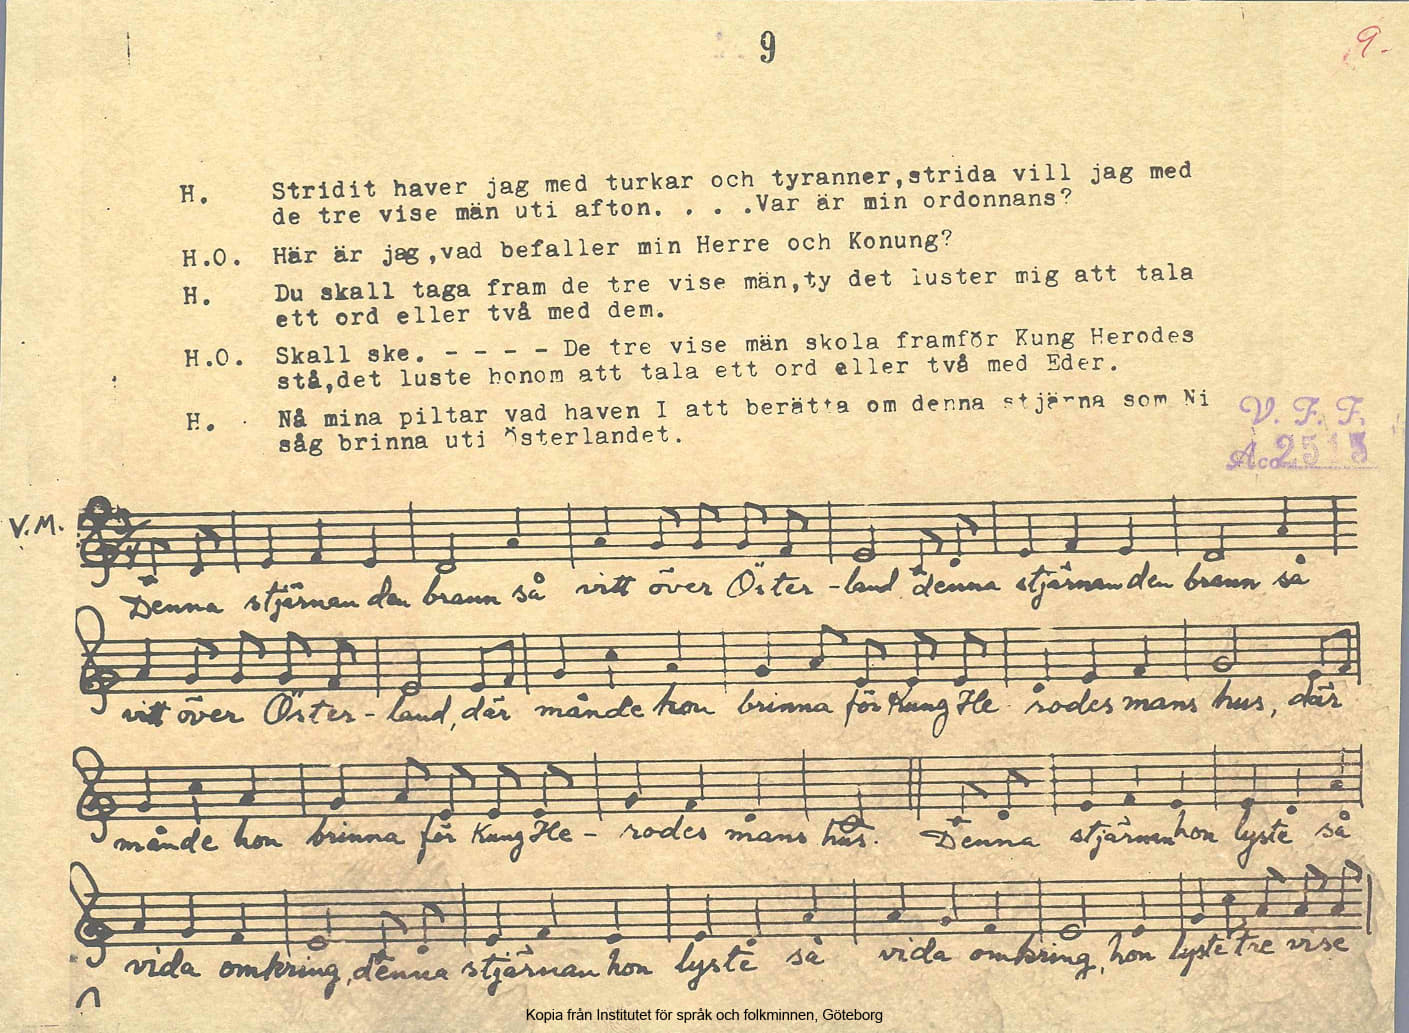 9
9.
H. Stridit haver jag med turkar och tyranner,strida vill jag med
de tre vise män uti afton. . . .Var är min ordonnans?
H.O. Här är jag,vad befaller min Herre och Konung?
H. Du skall taga fram de tre vise män,ty det luster mig att tala
ett ord eller två med dem.
H.O. Skall ske. - - - - De tre vise män skola framför Kung Herodes
stå,det luste honom att tala ett ord eller två med Eder.
H. Nå mina piltar vad haven I att berätta om denna stjärna som Ni
såg brinna uti Österlandet.
V. F. F.
Acc. 2513
V.M.
Denna stjärnan den brann så vitt över Öster-land denna stjärnan den brann så
vitt över Öster-land, där månde hon brinna för Kung He-rodes mans hus, där
månde hon brinna för Kung He-rodes mans hus. Denna stjärnan hon lyste så
vida omkring, denna stjärnan hon lyste så vida omkring, hon lyste tre vise
Kopia från Institutet för språk och folkminnen, Göteborg